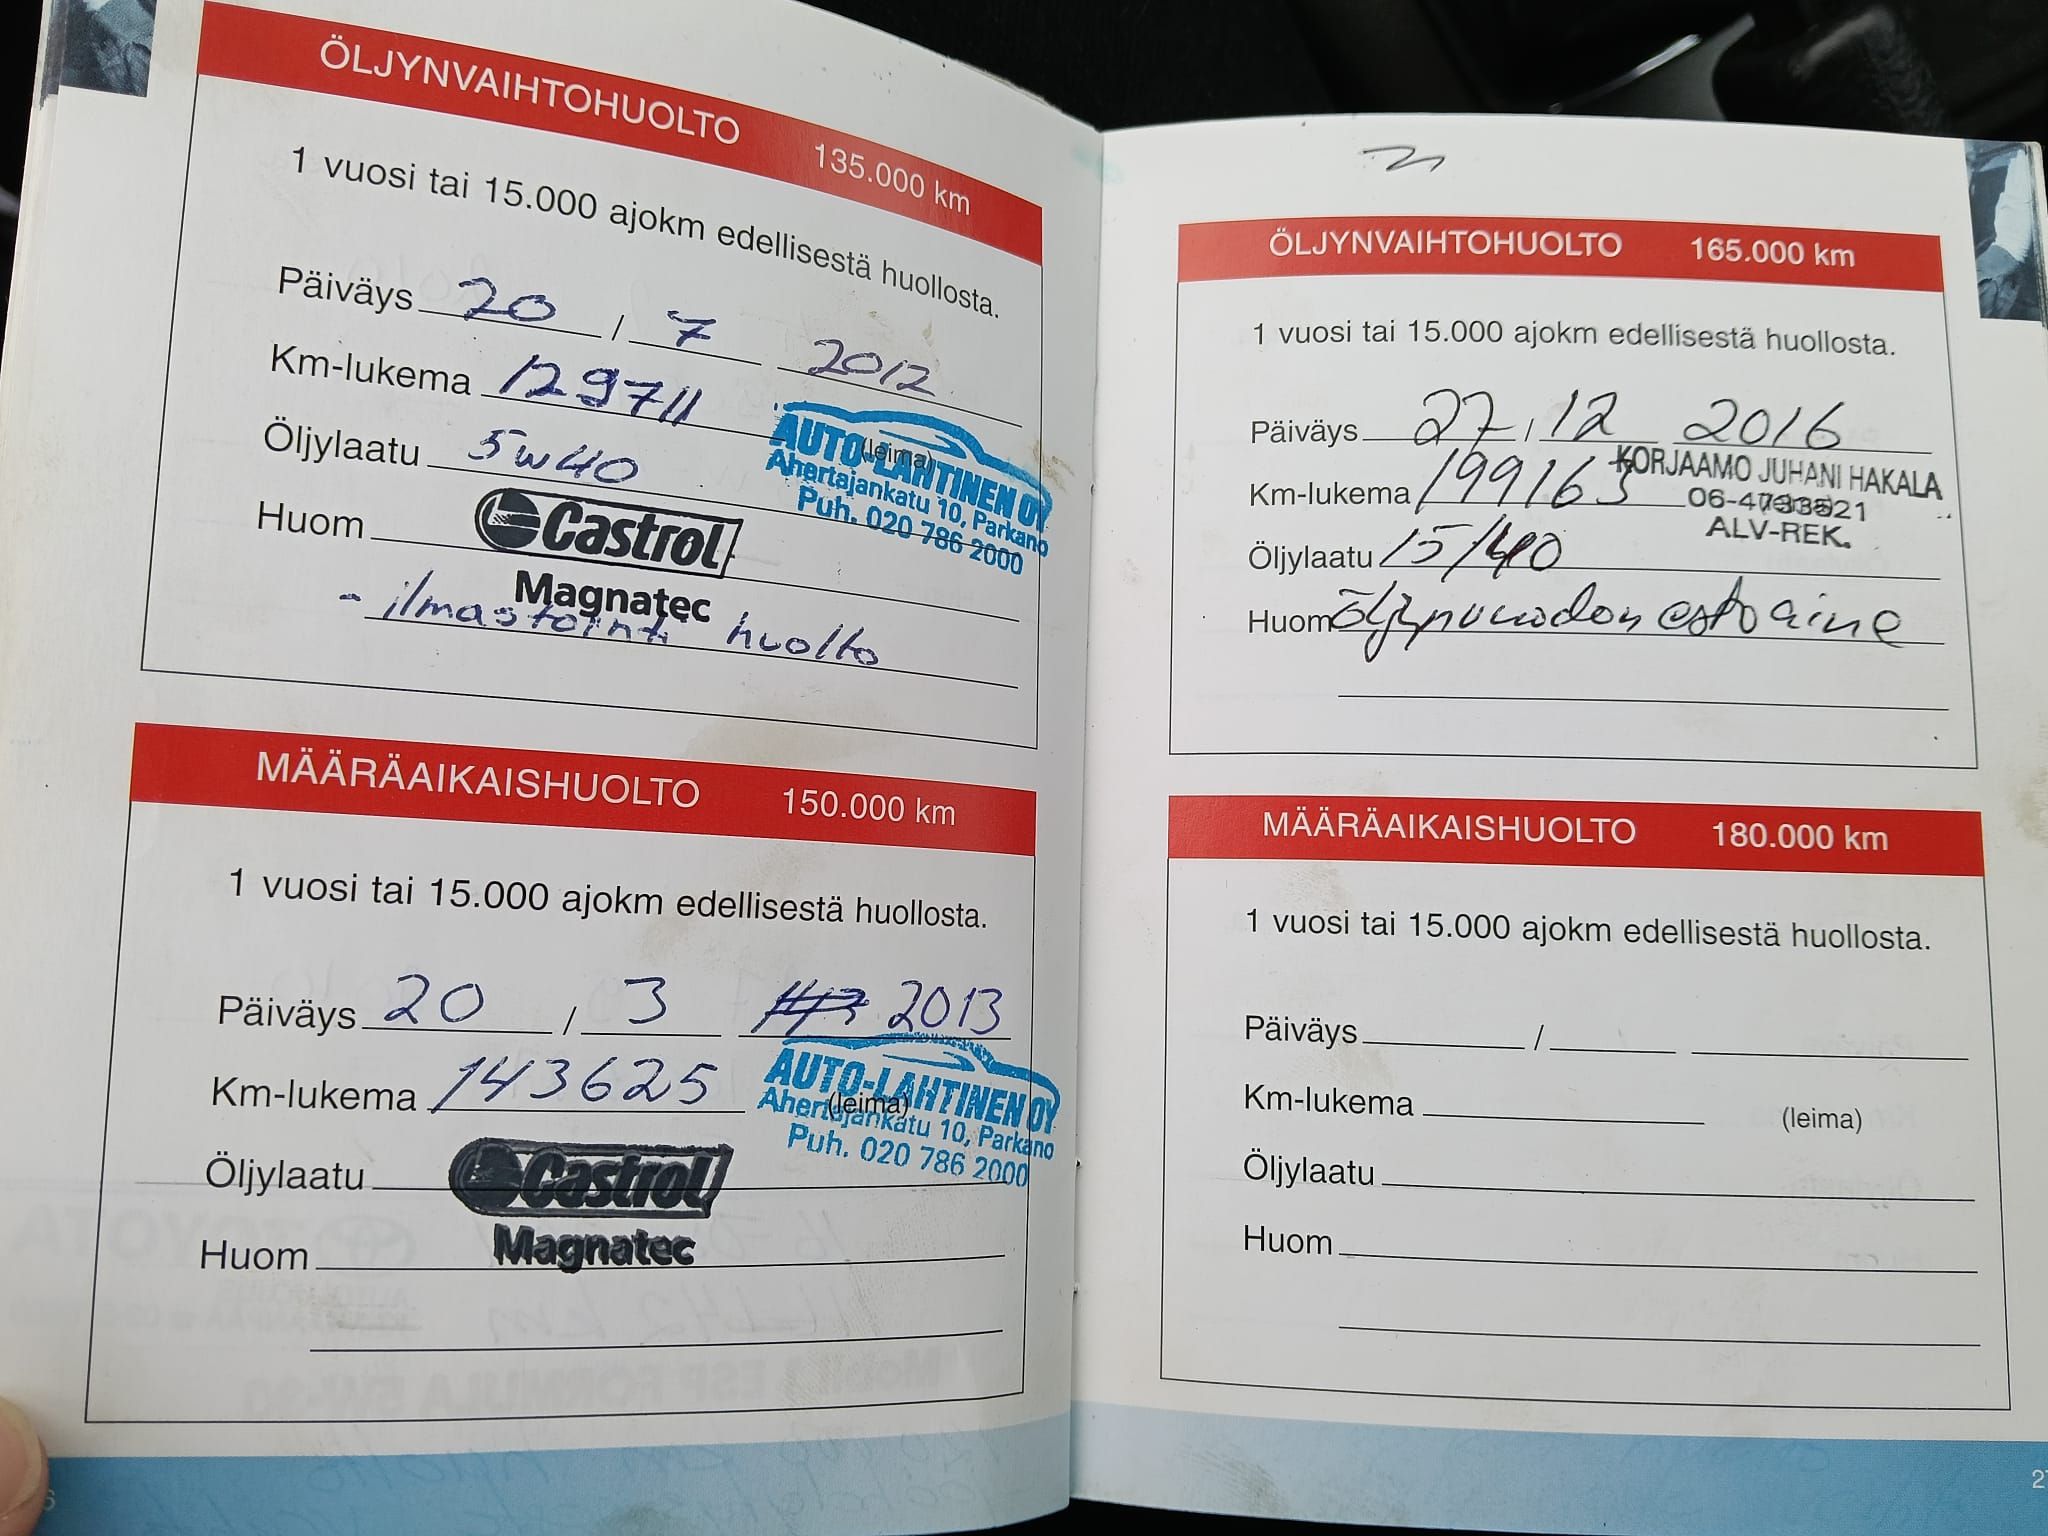 ÖLJYNVAIHTOHUOLTO 135.000 km
1 vuosi tai 15.000 ajokm edellisestä huollosta.
Päiväys 20 / 7 2012
Km-lukema 129711
Öljylaatu 5W40
(leima)
AUTO-LAHTINEN OY
Ahertajankatu 10, Parkano
Puh. 020 786 2000
Huom Castrol
Magnatec
- ilmastointi huolto
MÄÄRÄAIKAISHUOLTO 150.000 km
1 vuosi tai 15.000 ajokm edellisestä huollosta.
Päiväys 20 / 3 2013
Km-lukema 143625
(leima)
AUTO-LAHTINEN OY
Ahertajankatu 10, Parkano
Puh. 020 786 2000
Öljylaatu Castrol
Huom Magnatec
ÖLJYNVAIHTOHUOLTO 165.000 km
1 vuosi tai 15.000 ajokm edellisestä huollosta.
Päiväys 27 / 12 2016
Km-lukema 199163
KORJAAMO JUHANI HAKALA
(leima)
ALV-REK.
Öljylaatu 15/40
Huom öljynvuodon estoaine
MÄÄRÄAIKAISHUOLTO 180.000 km
1 vuosi tai 15.000 ajokm edellisestä huollosta.
Päiväys / 
Km-lukema (leima)
Öljylaatu
Huom